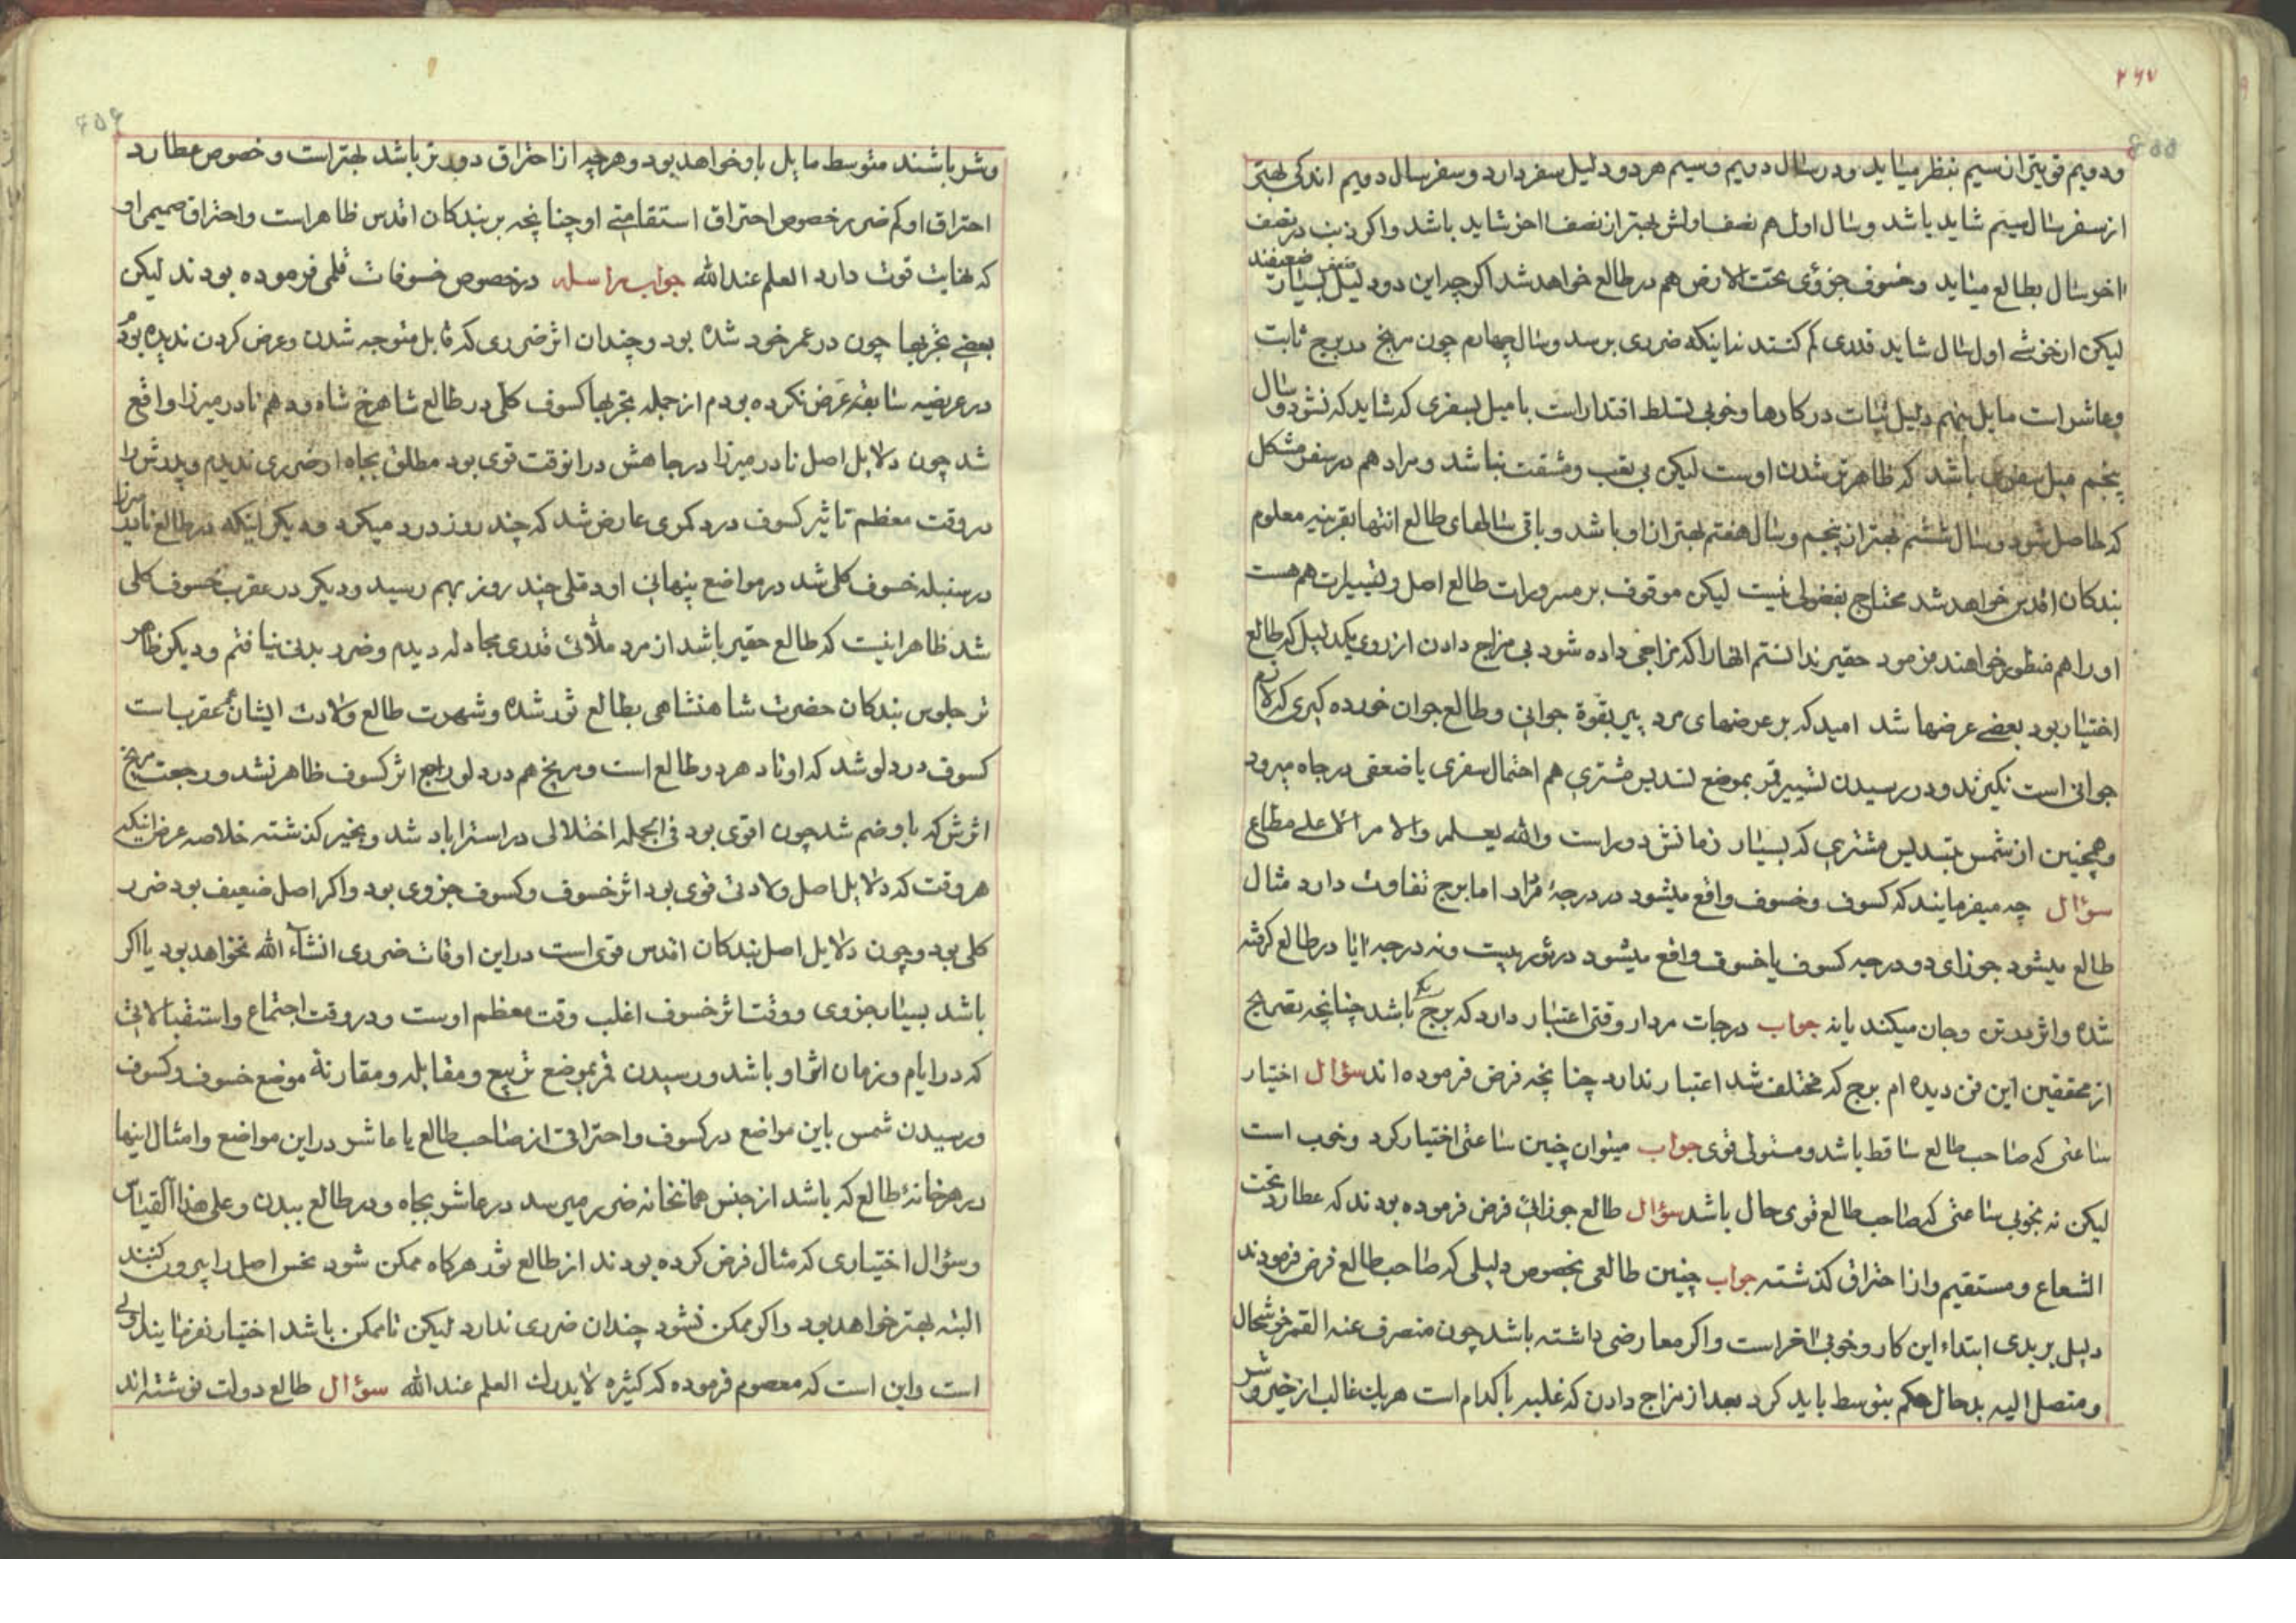 ۲۶۷
ودویم قویتر از سیم بنظر میٺاید ودر سال دویم وسیم هر دو دلیل سفر دارد و سفر سال دویم اندکی بهتر
از سفر سال سیم شاید باشد وسال اول هم نصف اولش بهتر از نصف اخر شاید باشد واکر ذنب در نصف
اخر سال بطالع میاید وخسوف جزؤی تحت الارض هم در طالع خواهد شد اکرچه این دو دلیل بسیار ضعیفند
لیکن از خوشی اول سال شاید قدری کم کنند نه اینکه ضرری برسد وسال چهارم چون مریخ در برج ثابت
وعاشر است مایل بنهم دلیل ثبات در کارها وخوبی تسلط اقتدار است با میل بسفری که شاید که نشود وسال
پنجم میل سفر باشد که ظاهر شدن اوست لیکن بی تعب ومشقت نباشد ومراد هم در سفر مشکل
که حاصل شود وسال ششم بهتر از پنجم وسال هفتم بهتر از او باشد وباقی سالهای طالع انتها بقرینه معلوم
بندکان اقدس خواهد شد محتاج بفضولی نیست لیکن موقوف بر مرورات طالع اصل وتسییرات هم هست
او را هم منظور خواهند فرمود حقیر ندانستم انها را که مزاجی داده شود بی مزاج دادن از روی یکدلیل که طالع
اختیار بود بعضی عرضها شد امید که بر عرضهای مرد پیر بقوة جوانی وطالع جوان خورده کیری که لازم
جوانی است نکیرند ودر رسیدن تسییر قمر بموضع تسدیس مشتری هم احتمال سفری یا ضعفی در جاه میرود
وهمچنین از شمس بتسدیس مشتری که بسیار زمانش دور است والله یعلم والامر الاعلی مطاع
سؤال چه میفرمایند که کسوف وخسوف واقع میشود در درجۀ مراد اما برج تفاوت دارد مثال
طالع میشود جوزای دو درجه کسوف یا خسوف واقع میشود در ثور بیست ونه درجه ایا در طالع کرفته
شده واثر بر تن وجان میکند یا نه جواب درجات مردار وقتی اعتبار دارد که برج یکی باشد چنانچه تصریح
از محققین این فن دیده ام برج که مختلف شد اعتبار ندارد چنانچه فرض فرموده اند سؤال اختیار
ساعتی که صاحب طالع ساقط باشد ومستولی قوی جواب میتوان چنین ساعتی اختیار کرد وخوب است
لیکن نه بخوبی ساعتی که صاحب طالع قوی حال باشد سؤال طالع جوزائی فرض فرموده بودند که عطارد تحت
الشعاع ومستقیم واز احتراق کذشته جواب چنین طالعی بخصوص دلیلی که صاحب طالع فرض فرمودند
دلیل بر بدی ابتداء این کار وخوبی اخر است واکر معارضی داشته باشد چون منصرف عنه القمر خوشحال
ومتصل الیه بد حال حکم بتوسط باید کرد بعد از مزاج دادن که غلبه با کدام است هر یک غالب از خیر وشر
وشر باشند متوسط مایل باو خواهد بود وهرچه از احتراق دورتر باشد بهتر است وخصوص عطارد
احتراق او کم ضرر خصوص احتراق استقامتی او چنانچه بر بندکان اقدس ظاهر است واحتراق صمیمی او
که نهایت قوت دارد العلم عند الله جواب مراسله در خصوص خسوفات قلمی فرموده بودند لیکن
بعضی تجربها چون در عمر خود شده بود وچندان اثر ضرری که قابل متوجه شدن وعرض کردن ندیده بودم
در عریضه سابقه عرض نکرده بودم از جمله تجربها کسوف کلی در طالع شاهرخ شاه ودهم نادر میرزا واقع
شد چون دلایل اصل نادر میرزا در جاهش در انوقت قوی بود مطلق بجاه او ضرری ندیدم وپدرش را
در وقت معظم تاثیر کسوف درد کمری عارض شد که چند روز درد میکرد ودیکر اینکه در طالع نادر میرزا
در سنبله خسوف کلی شد در مواضع پنهانی او دملی چند روز بهم رسید ودیکر در عقرب خسوف کلی
شد ظاهرا نیت که طالع حقیر باشد از مرد ملّائی قدری مجادله دیدم وضرر بدنی نیافتم ودیکر ظاهر
تر جلوس بندکان حضرت شاهنشاهی بطالع ثور شده وشهرت طالع ولادت ایشان هم عقرب است
کسوف در دلو شد که اوتاد هر دو طالع است ومریخ هم در دلو راجع اثر کسوف ظاهر نشد ورجعت مریخ
اثرش که باو ضم شد چون اقوی بود فی الجمله اختلالی در استراباد شد وبخیر کذشته خلاصه عرض اینکه
هر وقت که دلایل اصل ولادتی قوی بود اثر خسوف وکسوف جزوی بود واکر اصل ضعیف بود ضرر
کلی بود وچون دلایل اصل بندکان اقدس قوی است در این اوقات ضرری انشاء الله نخواهد بود یا اکر
باشد بسیار جزوی ووقت اثر خسوف اغلب وقت معظم اوست ودر وقت اجتماع واستقبالاتی
که در ایام وزمان اثر او باشد ورسیدن قمر بموضع تربیع ومقابله ومقارنۀ موضع خسوف وکسوف
ورسیدن شمس باین مواضع در کسوف واحتراقی از صاحب طالع یا عاشر در این مواضع وامثال اینها
در هر خانۀ طالع که باشد از جنس همانخانه ضرر میرسد در عاشر بجاه ودر طالع ببدن وعلی هذا القیاس
وسؤال اختیاری که مثال فرض کرده بودند از طالع ثور هرکاه ممکن شود نحس اصل را بیرون کنند
البته بهتر خواهد بود واکر ممکن نشود چندان ضرری ندارد لیکن تا ممکن باشد اختیار نفرمایند اولی
است واین است که معصوم فرموده که کثیره لا یدرک العلم عند الله سؤال طالع دولت نوشته اند